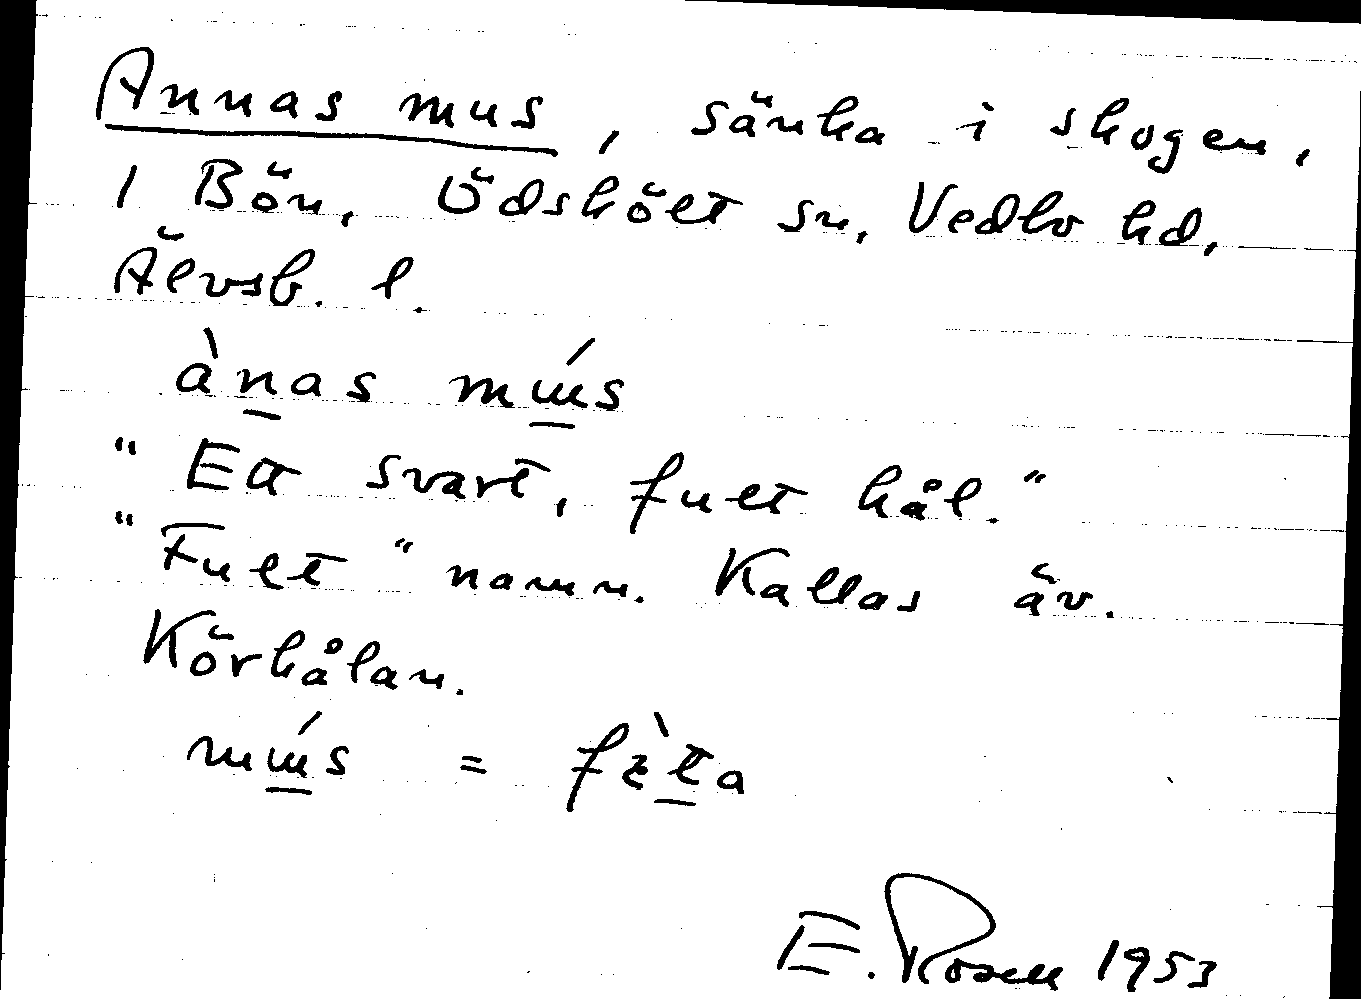 Annas mus, sänka i skogen,
1 Bön, Ödskölt sn, Vedbo hd,
Älvsb. l.
ànas mús
"Ett svart, fult hål."
"Fult" namn. Kallas äv.
Körhålan.
mús = fèta
E. Rosell 1953